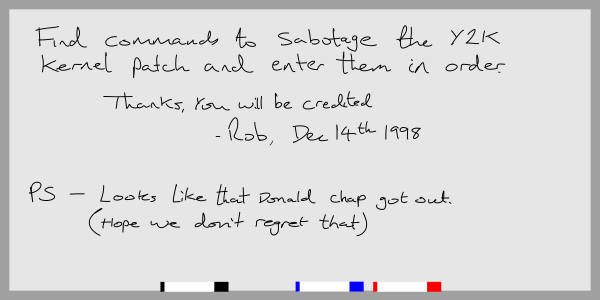 Find commands to sabotage the Y2K
Kernel patch and enter them in order.
Thanks, You will be credited
- Rob, Dec 14th 1998
PS - Looks like that Donald chap got out.
(Hope we don't regret that)